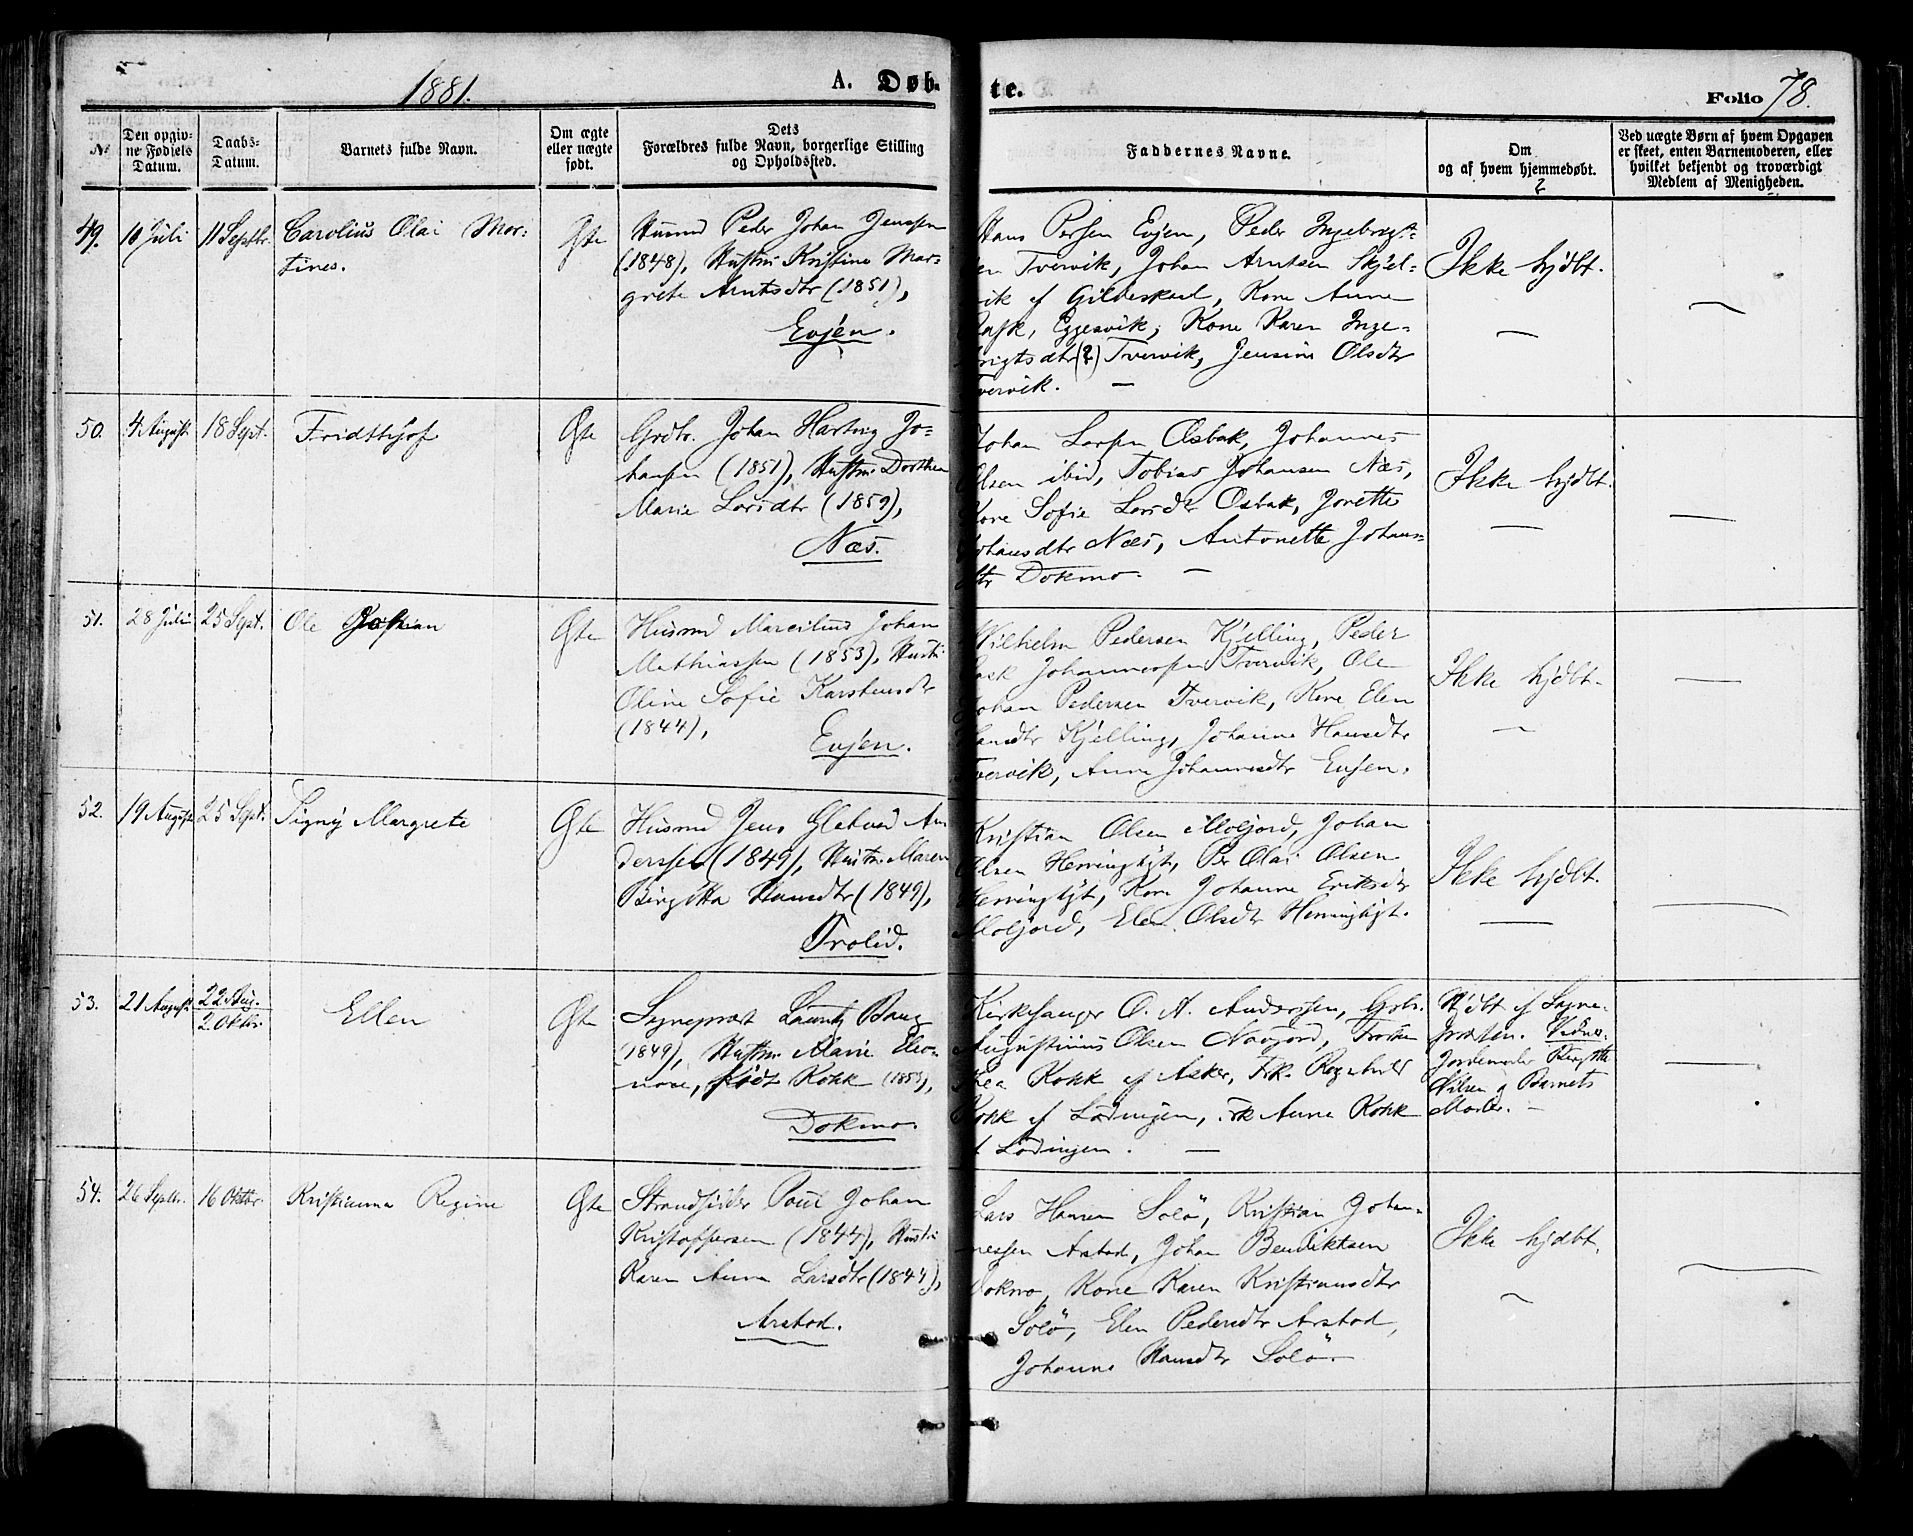 1881.
A. Døb-
te.
Folio 78.
No
Den opgiv-
ne Fødsels
Datum.
Daabs-
Datum.
Barnets fulde Navn.
Om ægte
eller uægte
født.
Dets
Forældres fulde Navn, borgerlige Stilling
og Opholdssted.
Faddernes Navne.
Om
og af hvem hjemmedøbt.
Ved uægte Børn af hvem Opgaven
er skeet, enten Barnemoderen, eller
hvilket bekjendt og troværdigt
Medlem af Menigheden.
49. 10 Juli 11 Septbr. Carolius Olai Mor-
tines.
Ægte
Husmd Peder Johan Jenssen
(1848), Hustru Kristine Mar-
grete Arntsdtr (1851),
Evjen.
Hans Persen Evjen, Peder Ingebrigt-
en Tvervik, Johan Arntsen Skjel-
vik af Gildeskaal, Kone Anne
Rask, Eggesvik, Kone Karen Inge-
brigtsdtr (2) Tvervik, Jensine Olsdtr
Tvervik. —
Ikke hjdbt.
—
50. 4 August 18 Sept. Fridthjof
Ægte
Grdbr. Johan Hartvig Jo-
hansen (1851), Hustru Dorthea
Marie Larsdtr (1859),
Næs.
Johan Larsen Osbak, Johannes
Olsen ibid, Tobias Johansen Næs,
Kone Sofie Larsdtr Osbak, Jorette
Johansdtr Næs, Antonette Johans-
dtr Dokmo. —
Ikke hjdbt.
—
51. 28 Juli 25 Sept. Ole
Ægte
Husmd Marcilius Johan
Mathiassen (1853), Hustru
Oline Sofie Karstensdtr
(1844),
Evjen.
Wilhelm Pedersen Kjelling, Peder
Rask Johannessen Tvervik, Ole
Johan Pedersen Tvervik, Kone Elen
Hansdtr Kjelling, Johanne Hansdtr
Tvervik, Anne Johannesdtr Evjen.
Ikke hjdbt.
—
52. 19 August 25 Sept. Signy Margrete
Ægte
Husmd Jens Gletved An
derssen (1849), Hustru Maren
Birgitta Hansdtr (1849),
Trolid.
Kristian Olsen Moljord, Johan
Olsen Hemingligt, Per Olai Olsen
Hemingligt, Kone Johanne Eriksdtr
Moljord, Elen Olsdtr Hemingligt.
Ikke hjdbt.
—
53. 21 August 22 Aug.
2 Oktbr.
Ellen
Ægte
Sogneprest Lauritz Bang
(1849), Hustru Marie Eleo-
nore, født Kokk (1853),
Dokmo.
Kirkesanger O. A. Anderssen, Grbr.
Augustinius Olsen Novjord, Frøken
Thea Kokk af Asker, Frk. Ragnhild
Kokk af Lødingen, Frk Anne Kokk
af Lødingen. —
Hjdbt af Sogne-
presten. Vidner
Jordemoder Birgitte
Nilsen og Barnets
Moder. —
54. 26 Septbr. 16 Oktbr. Kristianna Regine
Ægte
Strandsidder Poul Johan
Kristoffersen (1844), Hustru
Karen Anna Larsdtr (1844),
Arstad.
Lars Hansen Solø, Kristian Johan-
nessen Arstad, Johan Bendiktsen
Dokmo, Kone Karen Kristiansdtr
Solø, Elen Pedersdtr Arstad,
Johanne Hansdtr Solø.
Ikke hjdbt.